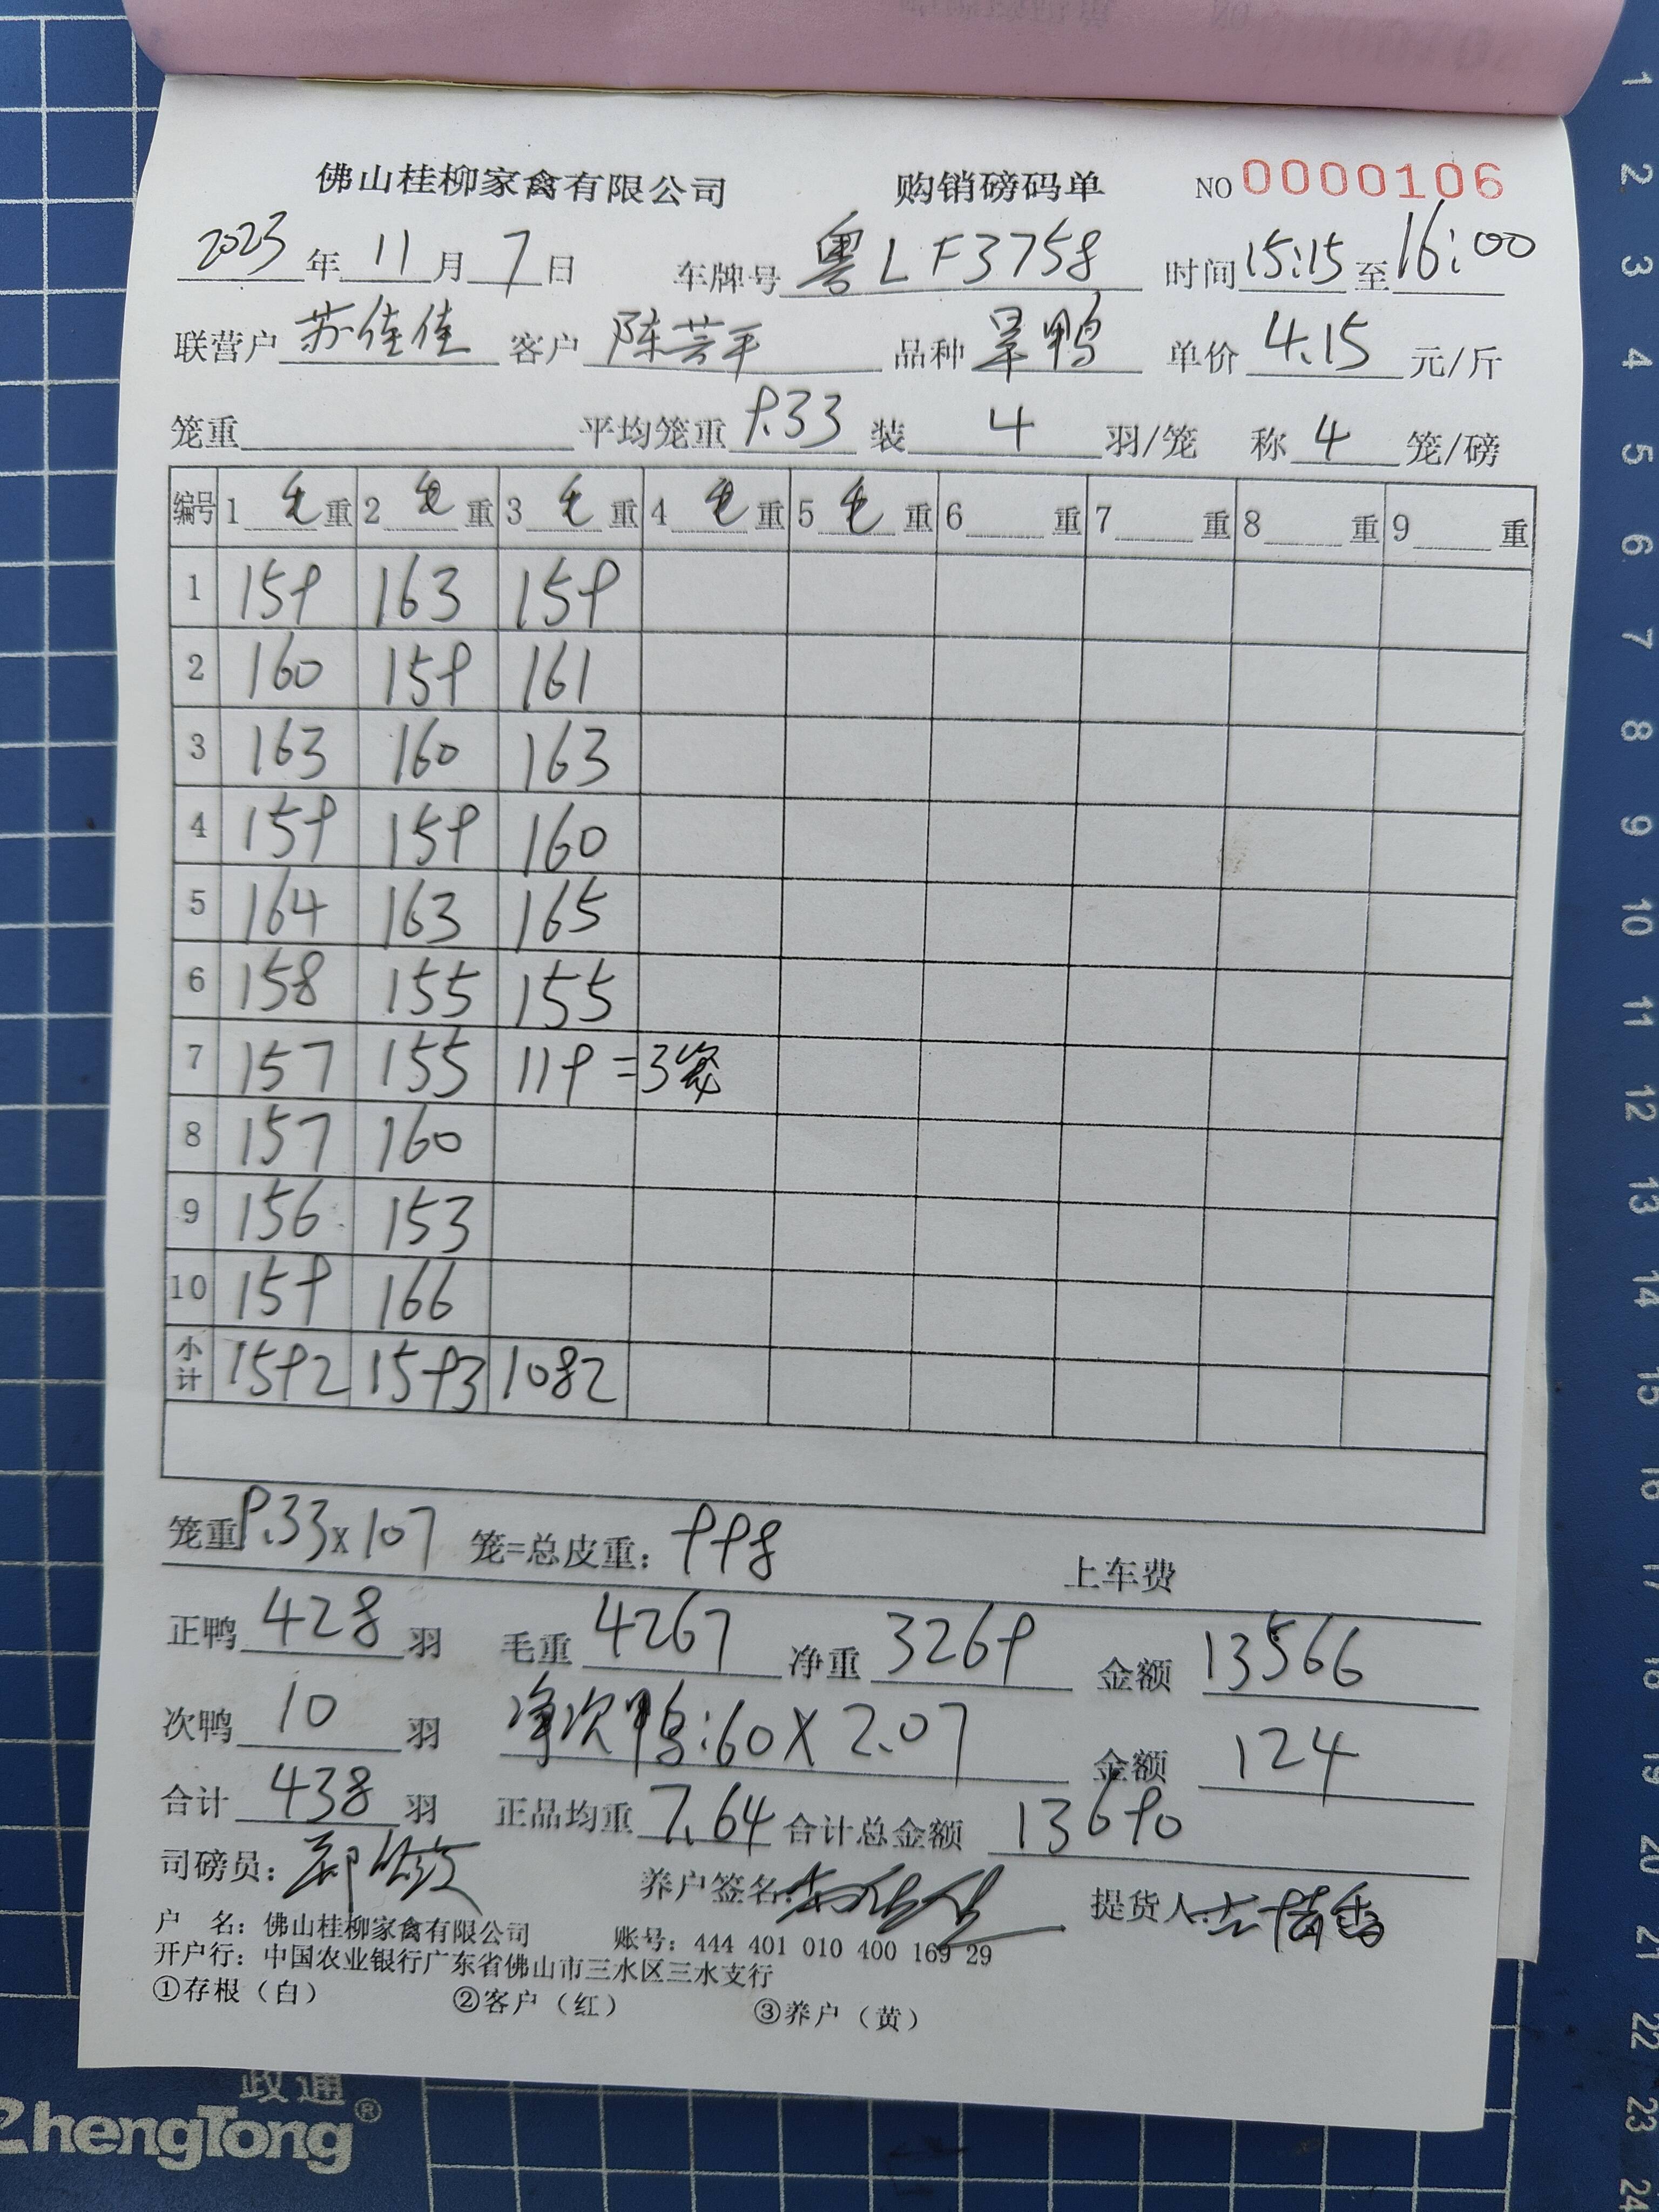 佛山桂柳家禽有限公司 购销磅码单 NO 0000106
2023年11月7日 车牌号 粤LF3758 时间15:15至16:00
联营户 苏佳佳 客户 陈芸平 品种 旱鸭 单价 4.15 元/斤
笼重 平均笼重 9.33 装 4 羽/笼 称 4 笼/磅
编号 1 毛重 2 毛重 3 毛重 4 毛重 5 毛重 6 重 7 重 8 重 9 重
1 159 163 159
2 160 159 161
3 163 160 163
4 159 159 160
5 164 163 165
6 158 155 155
7 157 155 119 =3笼
8 157 160
9 156 153
10 159 166
小计 1592 1593 1082
笼重9.33x107 笼=总皮重: 998 上车费
正鸭 428 羽 毛重 4267 净重 3269 金额 13566
次鸭 10 羽 净次鸭:60X2.07 金额 124
合计 438 羽 正品均重 7.64 合计总金额 13690
司磅员: 养户签名: 提货人:
户 名: 佛山桂柳家禽有限公司 账号: 444 401 010 400 169 29
开户行: 中国农业银行广东省佛山市三水区三水支行
①存根（白） ②客户（红） ③养户（黄）
政通
ZhengTong®
1
2
3
4
5
6
7
8
9
10
11
12
13
14
15
16
17
18
19
20
21
22
23
24